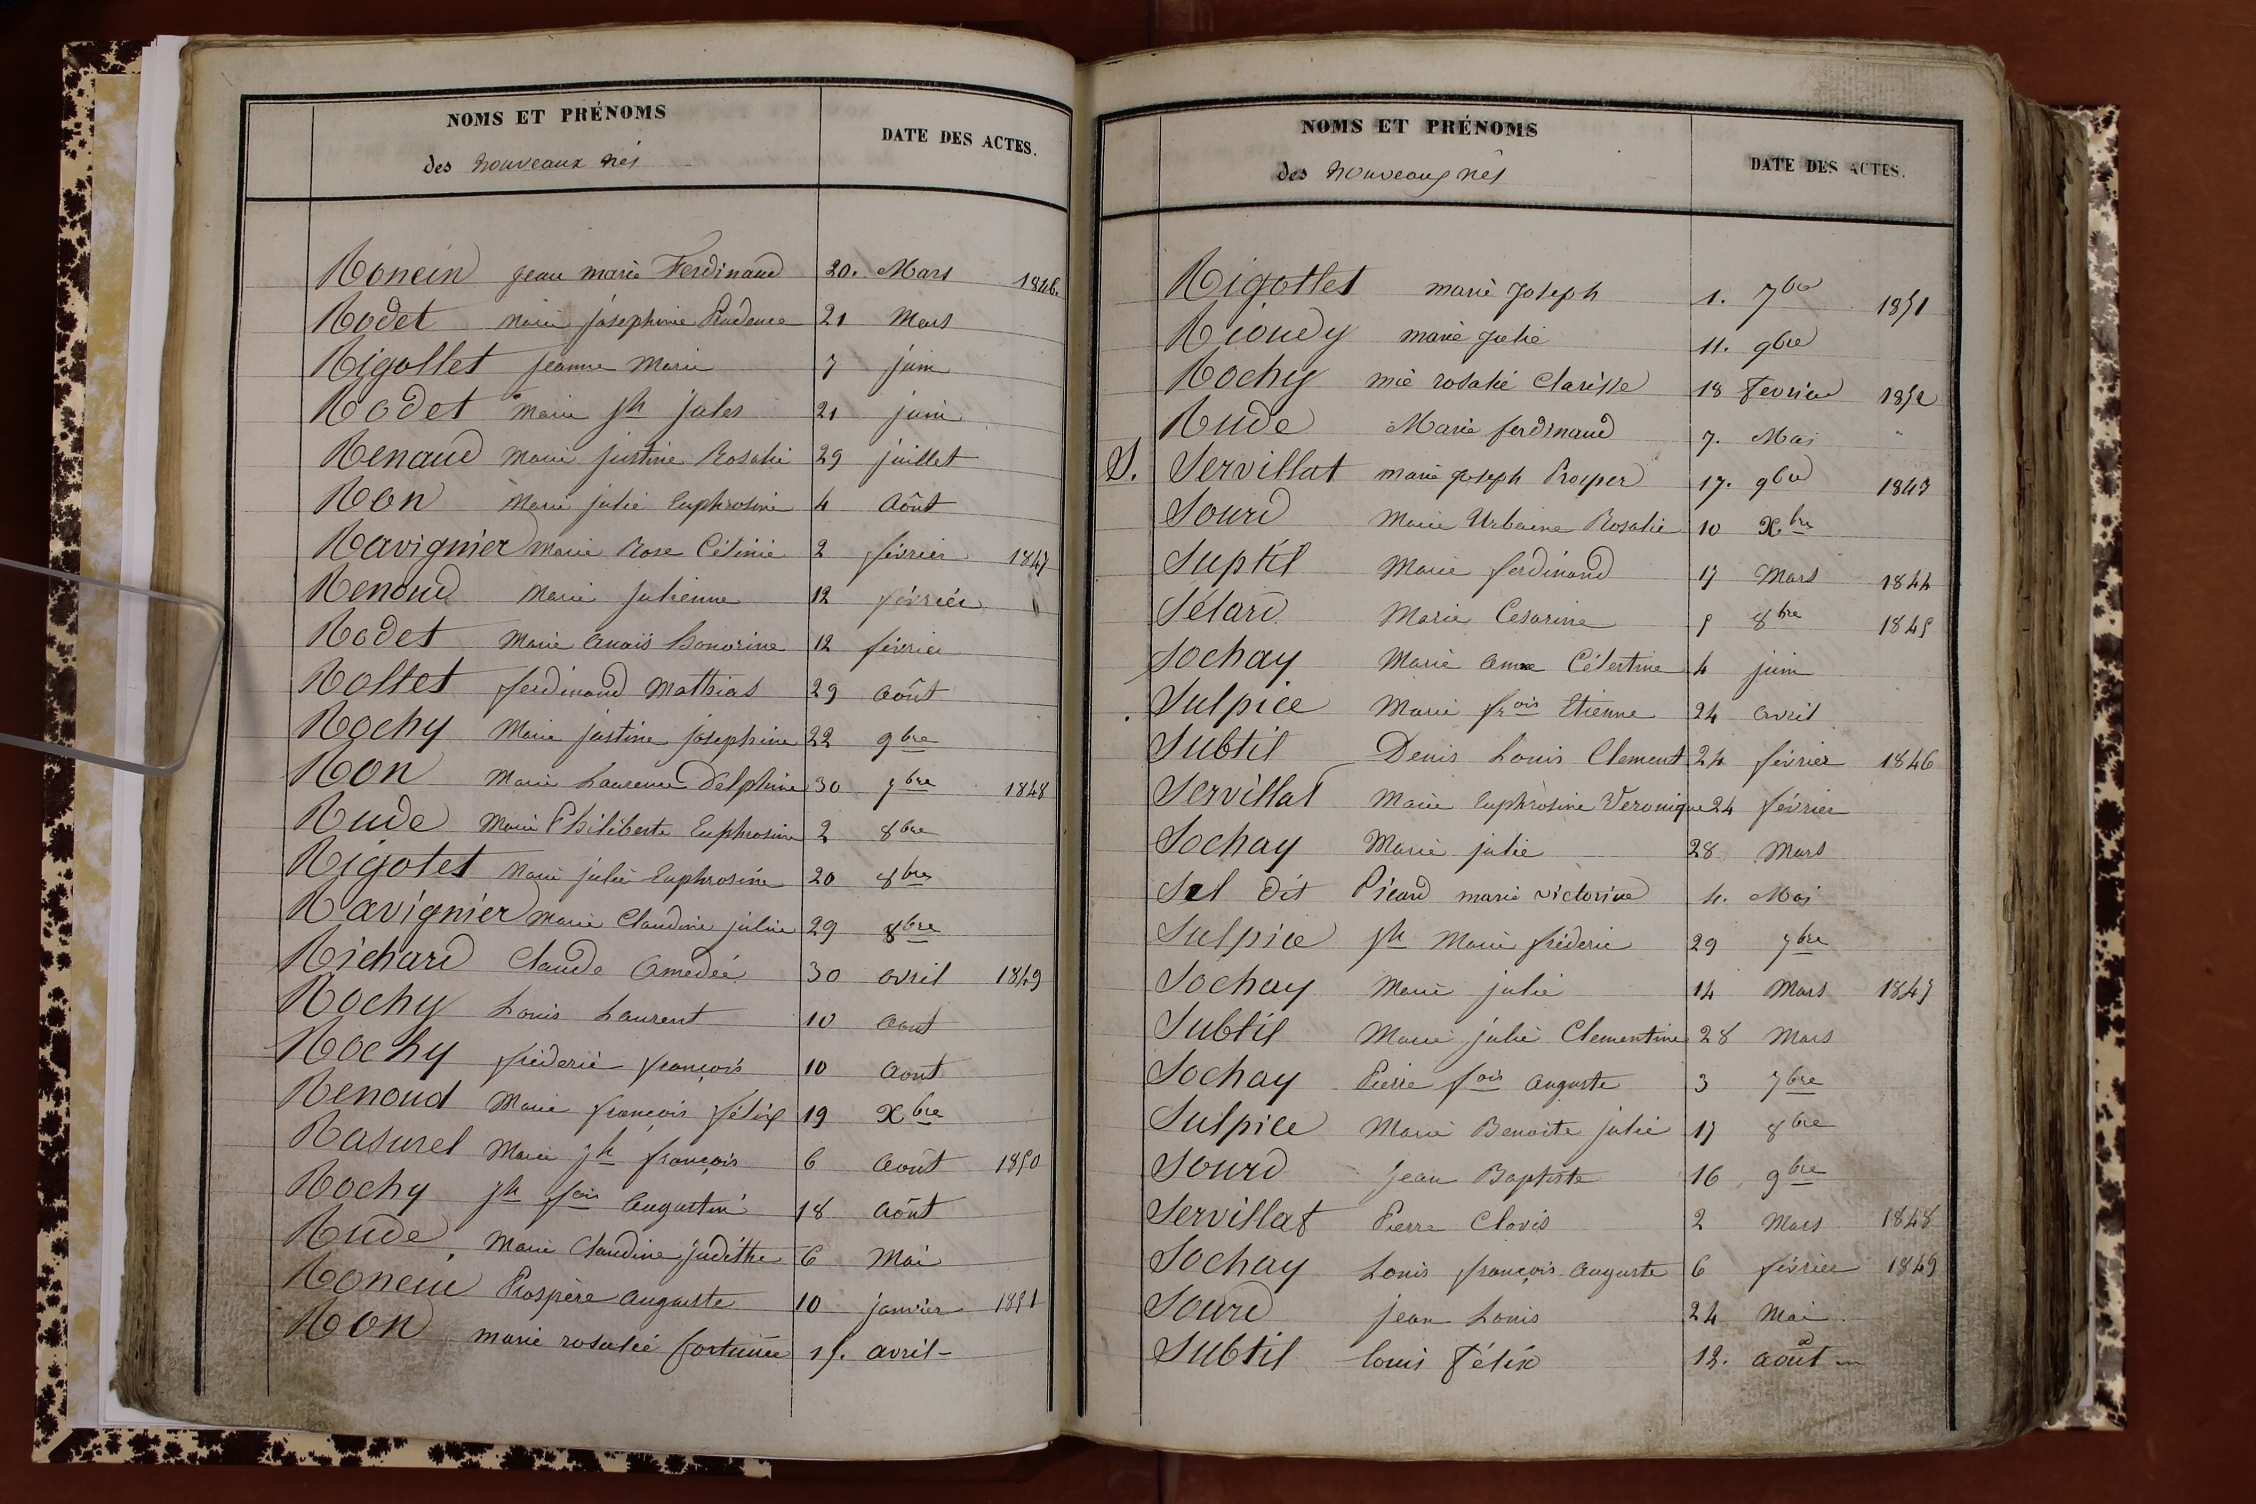 NOMS ET PRÉNOMS DATE DES ACTES.
des nouveaux nés
Ronein jean marie Ferdinand 20. Mars 1846.
Rodet Marie joséphine Prudence 21 Mars
Rigollet jeanne Marie 7 juin
Rodet Marie jh jules 21 juin
Renaud Marie justine Rosalie 29 juillet
Ron Marie julie Euphrosine 4 Août
Ravignier Marie Rose Célinie 2 février 1847
Renoud Marie julienne 12 février
Rodet Marie Anaïs honorine 12 février
Rollet ferdinand Mathias 29 août
Rochy Marie justine joséphine 22 9bre
Ron Marie Laurence Delphine 30 7bre 1848
Rude Marie Philiberte Euphrosine 2 8bre
Rigotet Marie julie Euphrosine 20 8bre
Ravignier Marie Claudine julie 29 8bre
Richard Claude Amedée 30 avril 1849
Rochy Louis Laurent 10 aout
Rochy fréderic françois 10 aout
Renoud Marie françois félix 19 Xbre
Rasurel Marie jh françois 6 août 1850
Rochy jh fois Augustin 18 août
Rude, Marie Claudine judithe 6 Mai
Ronein Prospère Auguste 10 janvier 1851
Ron marie rosalie fortunée 15. avril -
NOMS ET PRÉNOMS DATE DES ACTES.
des nouveaux nés
Rigottet marie joseph 1. 7bre 1851
Rioudy marie julie 11. 9bre
Rochy mie rosalie Clarisse 18 Fevrier 1852
Rude Marie ferdinand 7. Mai "
S. Servillat marie joseph Prosper 17. 9bre 1843
Sourd Marie Urbaine Rosalie 10 Xbre
Suptil Marie ferdinand 17 Mars 1844
Sétard Marie Cesarine 5 8bre 1845
Sochay Marie Anne Célestine 4 juin
Sulpice Marie frois Etienne 24 avril
Subtil Denis Louis Clement 24 février 1846
Servillat Marie Euphrosine Veronique 24 février
Sochay Marie julie 28 Mars
Sel dit Picard marie victorine 4. Mai
Sulpice jh Marie fréderic 29 7bre
Sochay Marie julie 14 Mars 1847
Subtil Marie julie Clementine 28 Mars
Sochay Pierre fois Auguste 3 7bre
Sulpice Marie Benoite julie 17 8bre
Sourd jean Baptiste 16 9bre
Servillat Pierre Clovis 2 Mars 1848
Sochay Louis françois Auguste 6 février 1849
Sourd jean Louis 24 Mai
Subtil louis Félix 12. août